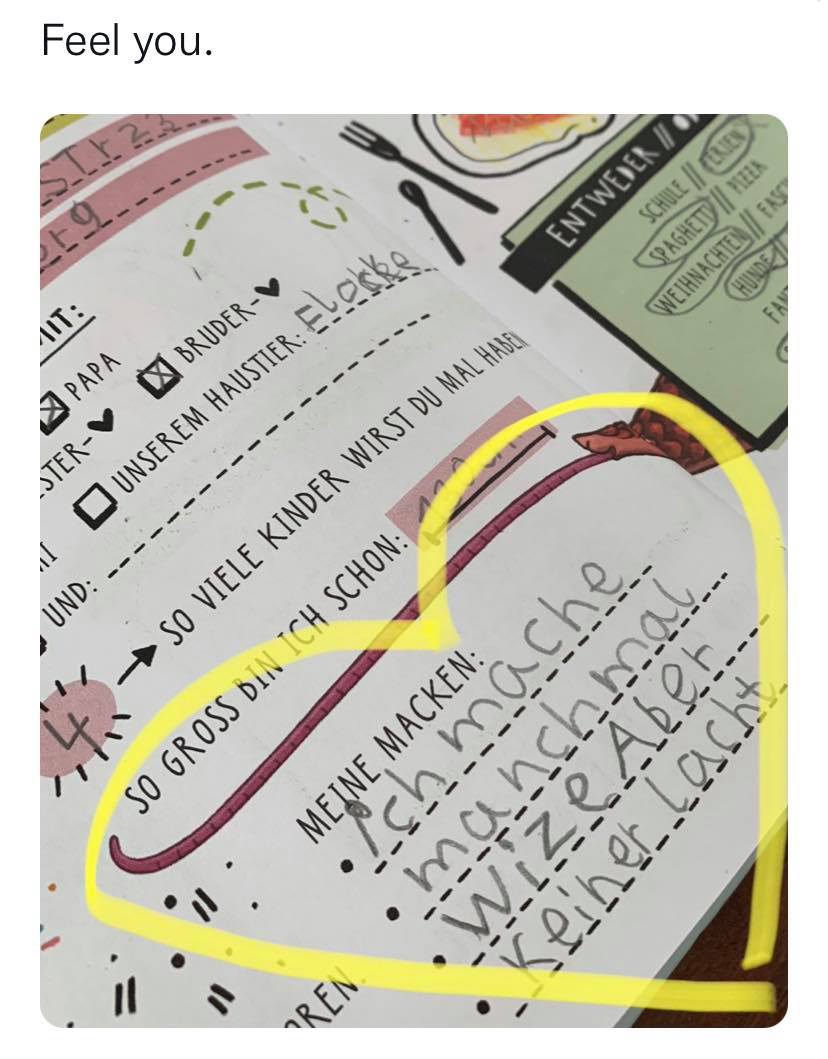 Feel you.
STr 23
org
ENTWEDER // O
SCHULE // FERIEN
SPAGHETTI // PIZZA
WEIHNACHTEN // FASCH
HUNDE /
FAN
MIT:
PAPA
BRUDER-
STER-
UNSEREM HAUSTIER: Flocke
UND:
SO VIELE KINDER WIRST DU MAL HABEN
4
SO GROSS BIN ICH SCHON:
MEINE MACKEN:
Ich mache
manchmal
Wize Aber
Keiner lacht
OREN.